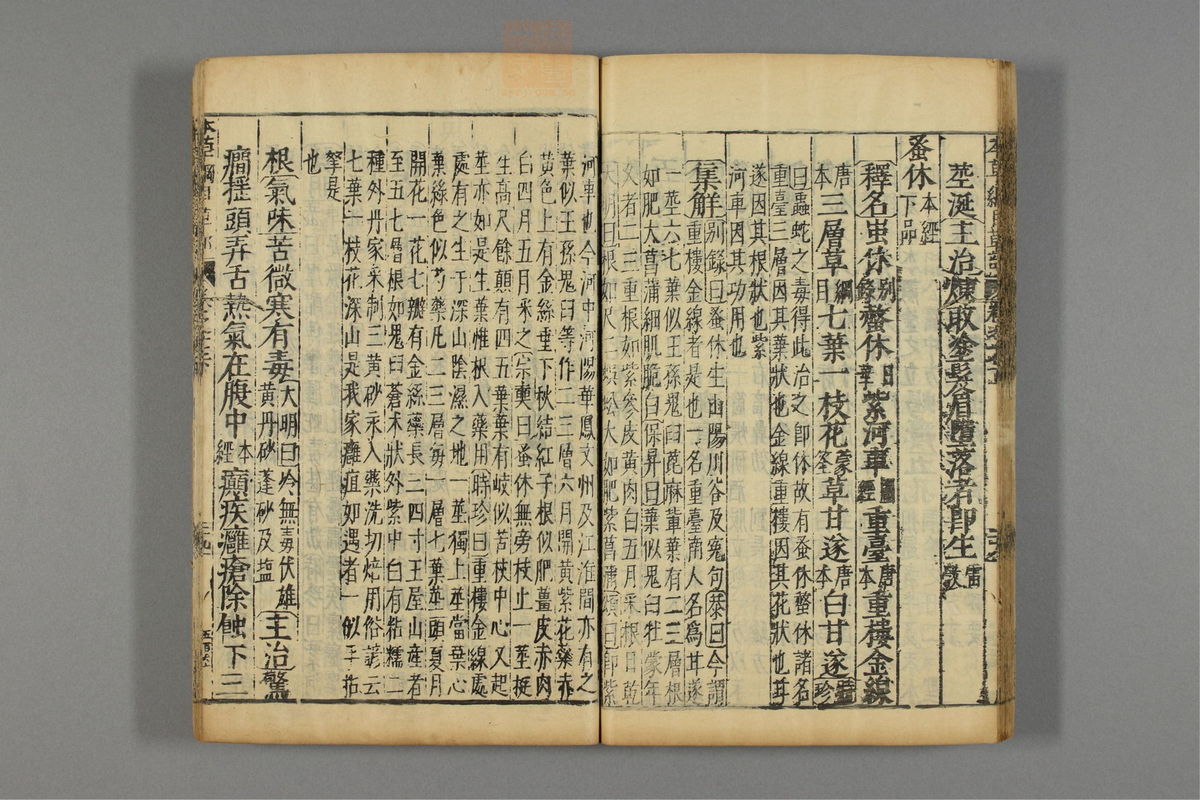 莖涎主治煉敢塗髮眉墮落者即生雷斆
蚤休本經下品
釋名蚩休別錄螫休日華紫河車圖經重臺唐本重樓金線
唐本三層草綱目七葉一枝花蒙筌草甘遂唐本白甘遂時珍
曰蟲蛇之毒得此治之即休故有蚤休螫休諸名
重臺三層因其葉狀也金線重樓因其花狀也甘
遂因其根狀也紫
河車因其功用也
集解別錄曰蚤休生山陽川谷及冤句恭曰今謂
重樓金線者是也一名重臺南人名為甘遂
一莖六七葉似王孫鬼臼蓖麻輩葉有二三層根
如肥大菖蒲細肌脆白保昇曰葉似鬼臼牡蒙年
久者二三重根如紫參皮黃肉白五月采根日乾
大明曰根如尺二蜈蚣大如肥紫菖蒲頌曰即紫
河車也今河中河陽華鳳文州及江淮間亦有之
葉似王孫鬼臼等作二三層六月開黃紫花蘂赤
黃色上有金絲垂下秋結紅子根似肥薑皮赤肉
白四月五月采之宗奭曰蚤休無旁枝止一莖挺
生高尺餘顛有四五葉葉有岐似苦杖中心又起
莖亦如是生葉惟根入藥用時珍曰重樓金線處
處有之生于深山陰濕之地一莖獨上莖當葉心
葉綠色似芍藥凡二三層每一層七葉莖頭夏月
開花一花七瓣有金絲蘂長三四寸王屋山產者
至五七層根如鬼臼蒼朮狀外紫中白有粘糯二
種外丹家采制三黃砂汞入藥洗切焙用俗諺云
七葉一枝花深山是我家癰疽如遇者一似手拈
拏是
也
根氣味苦微寒有毒大明曰冷無毒伏雄黃丹砂蓬砂及塩主治驚
癇揺頭弄舌熱氣在腹中本經癲疾癰瘡除蝕下三